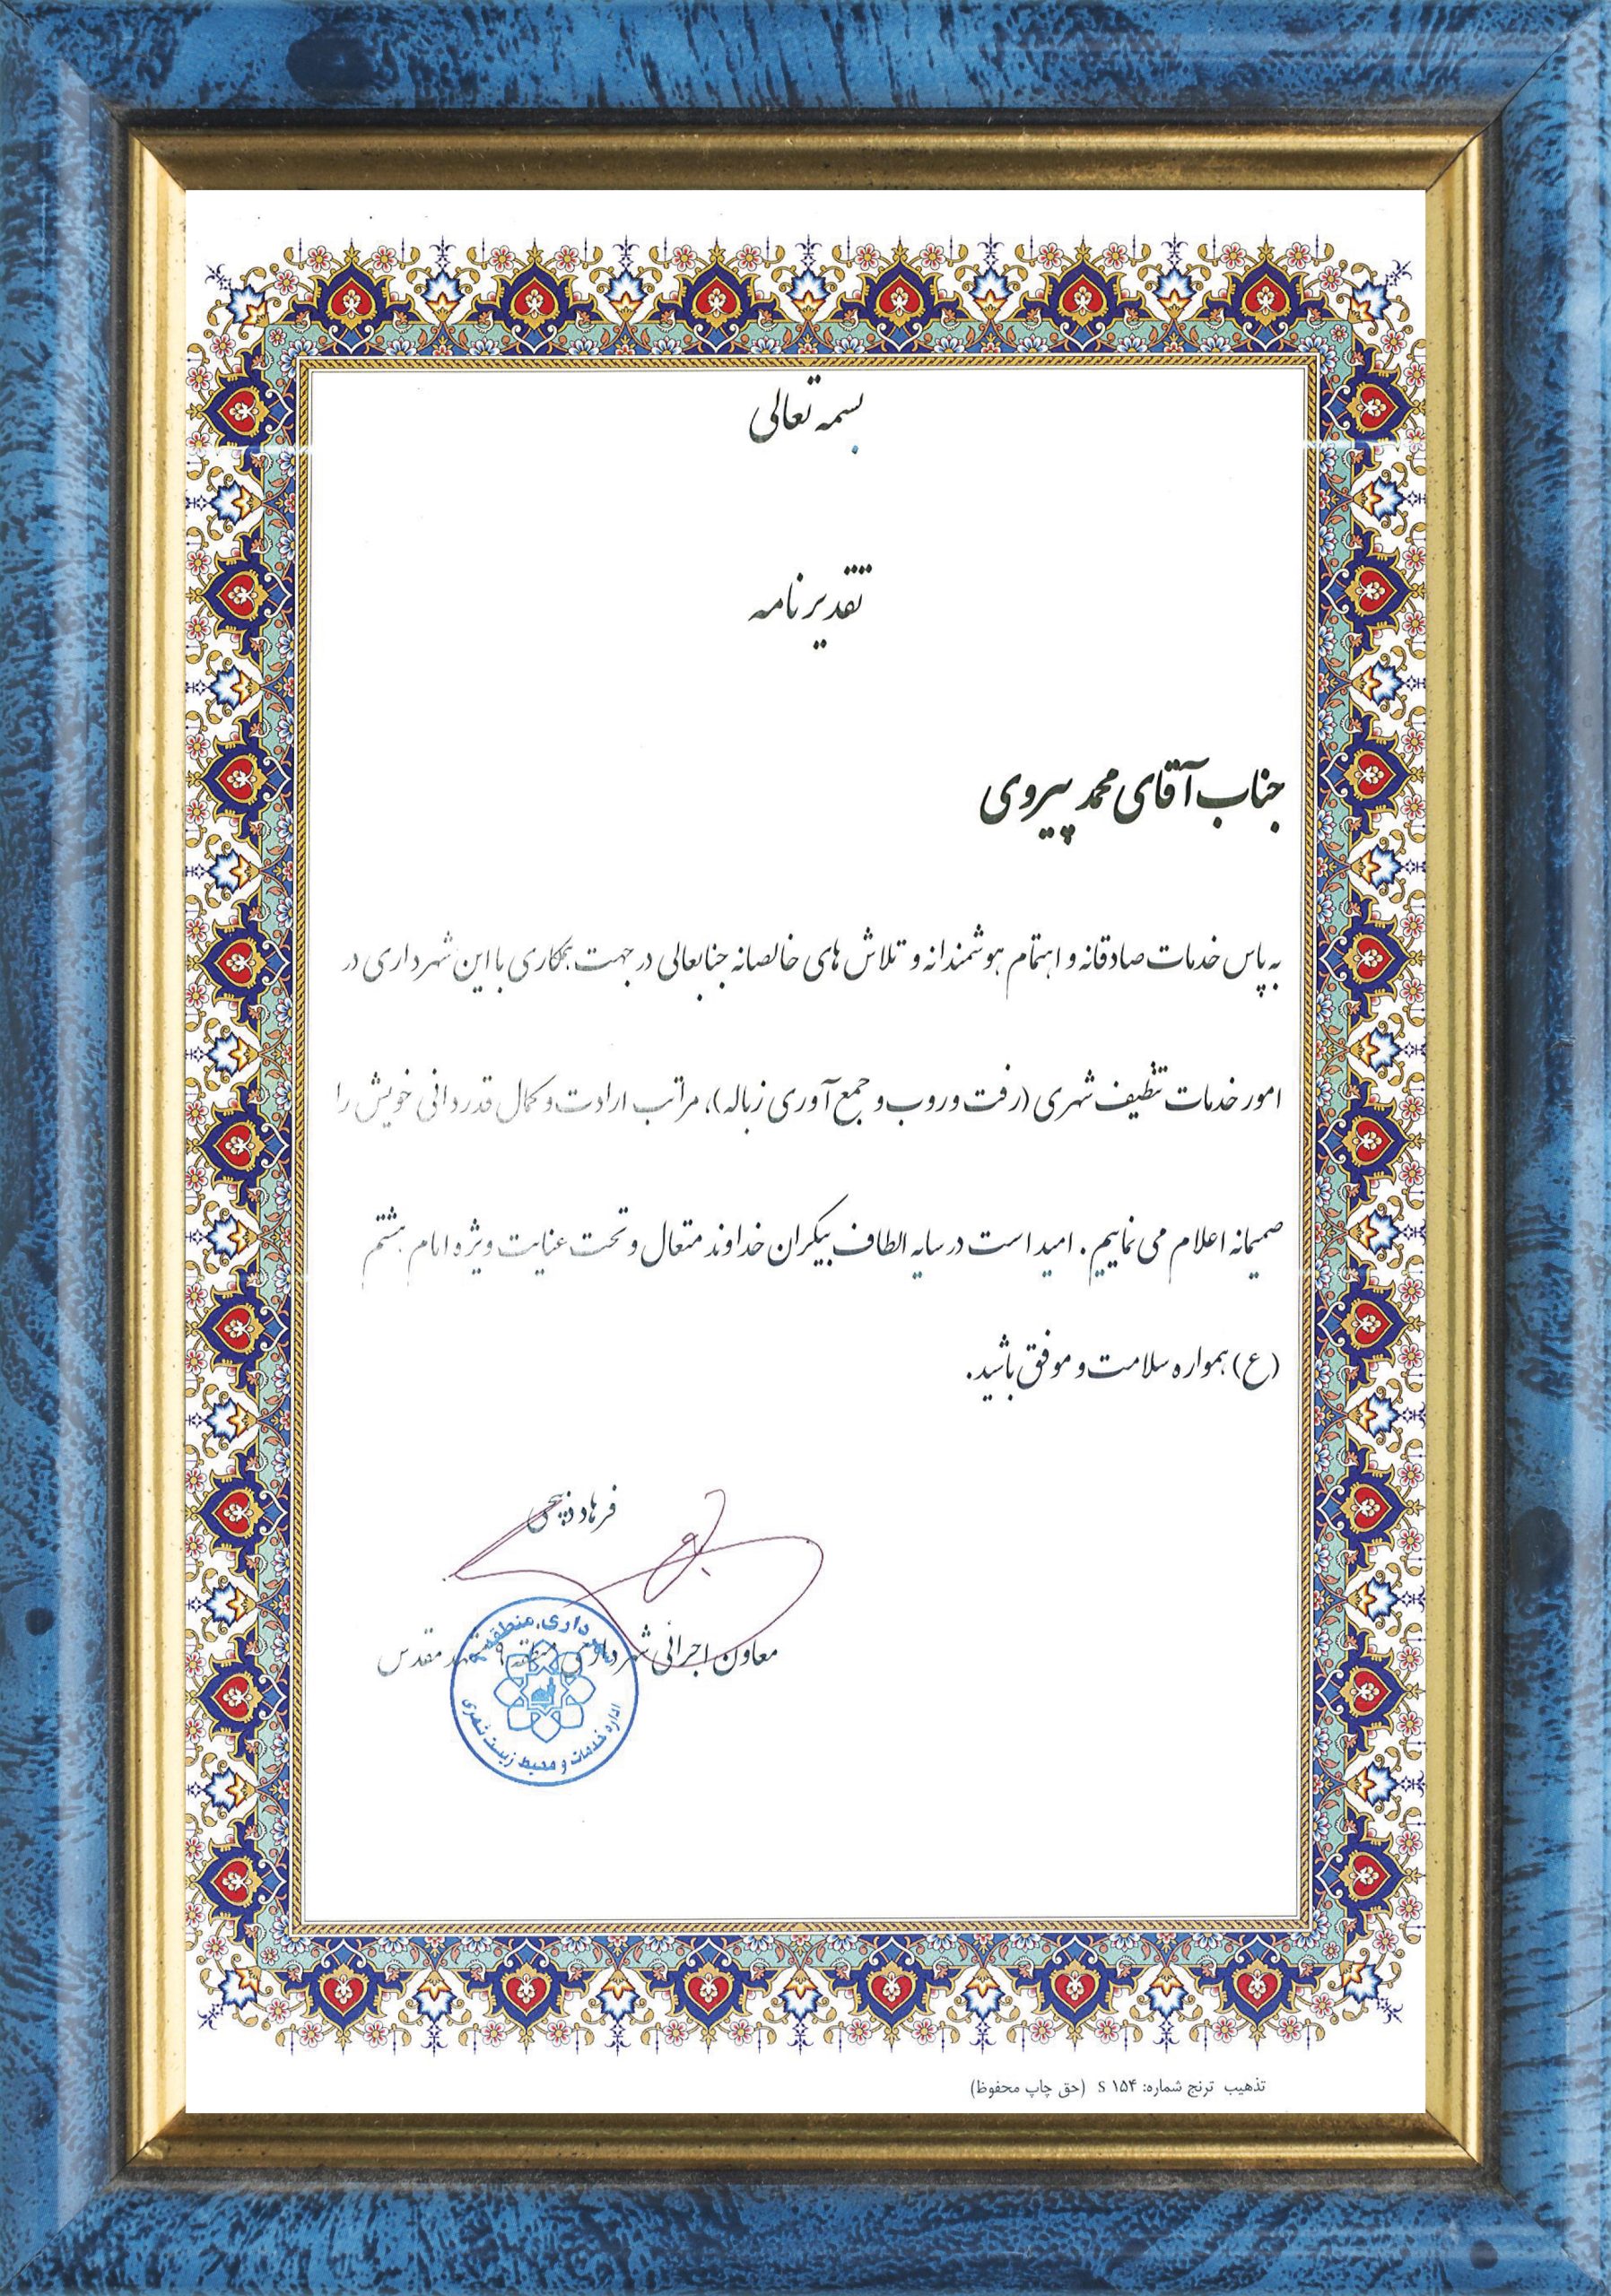 بسمه تعالی
تقدیرنامه
جناب آقای محمد پیروی
به پاس خدمات صادقانه و اهتمام هوشمندانه و تلاش های خالصانه جنابعالی در جهت همکاری با این شهرداری در
امور خدمات تنظیف شهری (رفت و روب و جمع آوری زباله)، مراتب ارادت و کمال قدردانی خویش را
صمیمانه اعلام می نماییم. امید است در سایه الطاف بیکران خداوند متعال و تحت عنایت ویژه امام هشتم
(ع) همواره سلامت و موفق باشید.
فرهاد
معاون اجرائی شهرداری منطقه ۹ مشهد مقدس
شهرداری منطقه
اداره خدمات و محیط زیست شهری
تذهیب ترنج شماره: S ۱۵۴ (حق چاپ محفوظ)